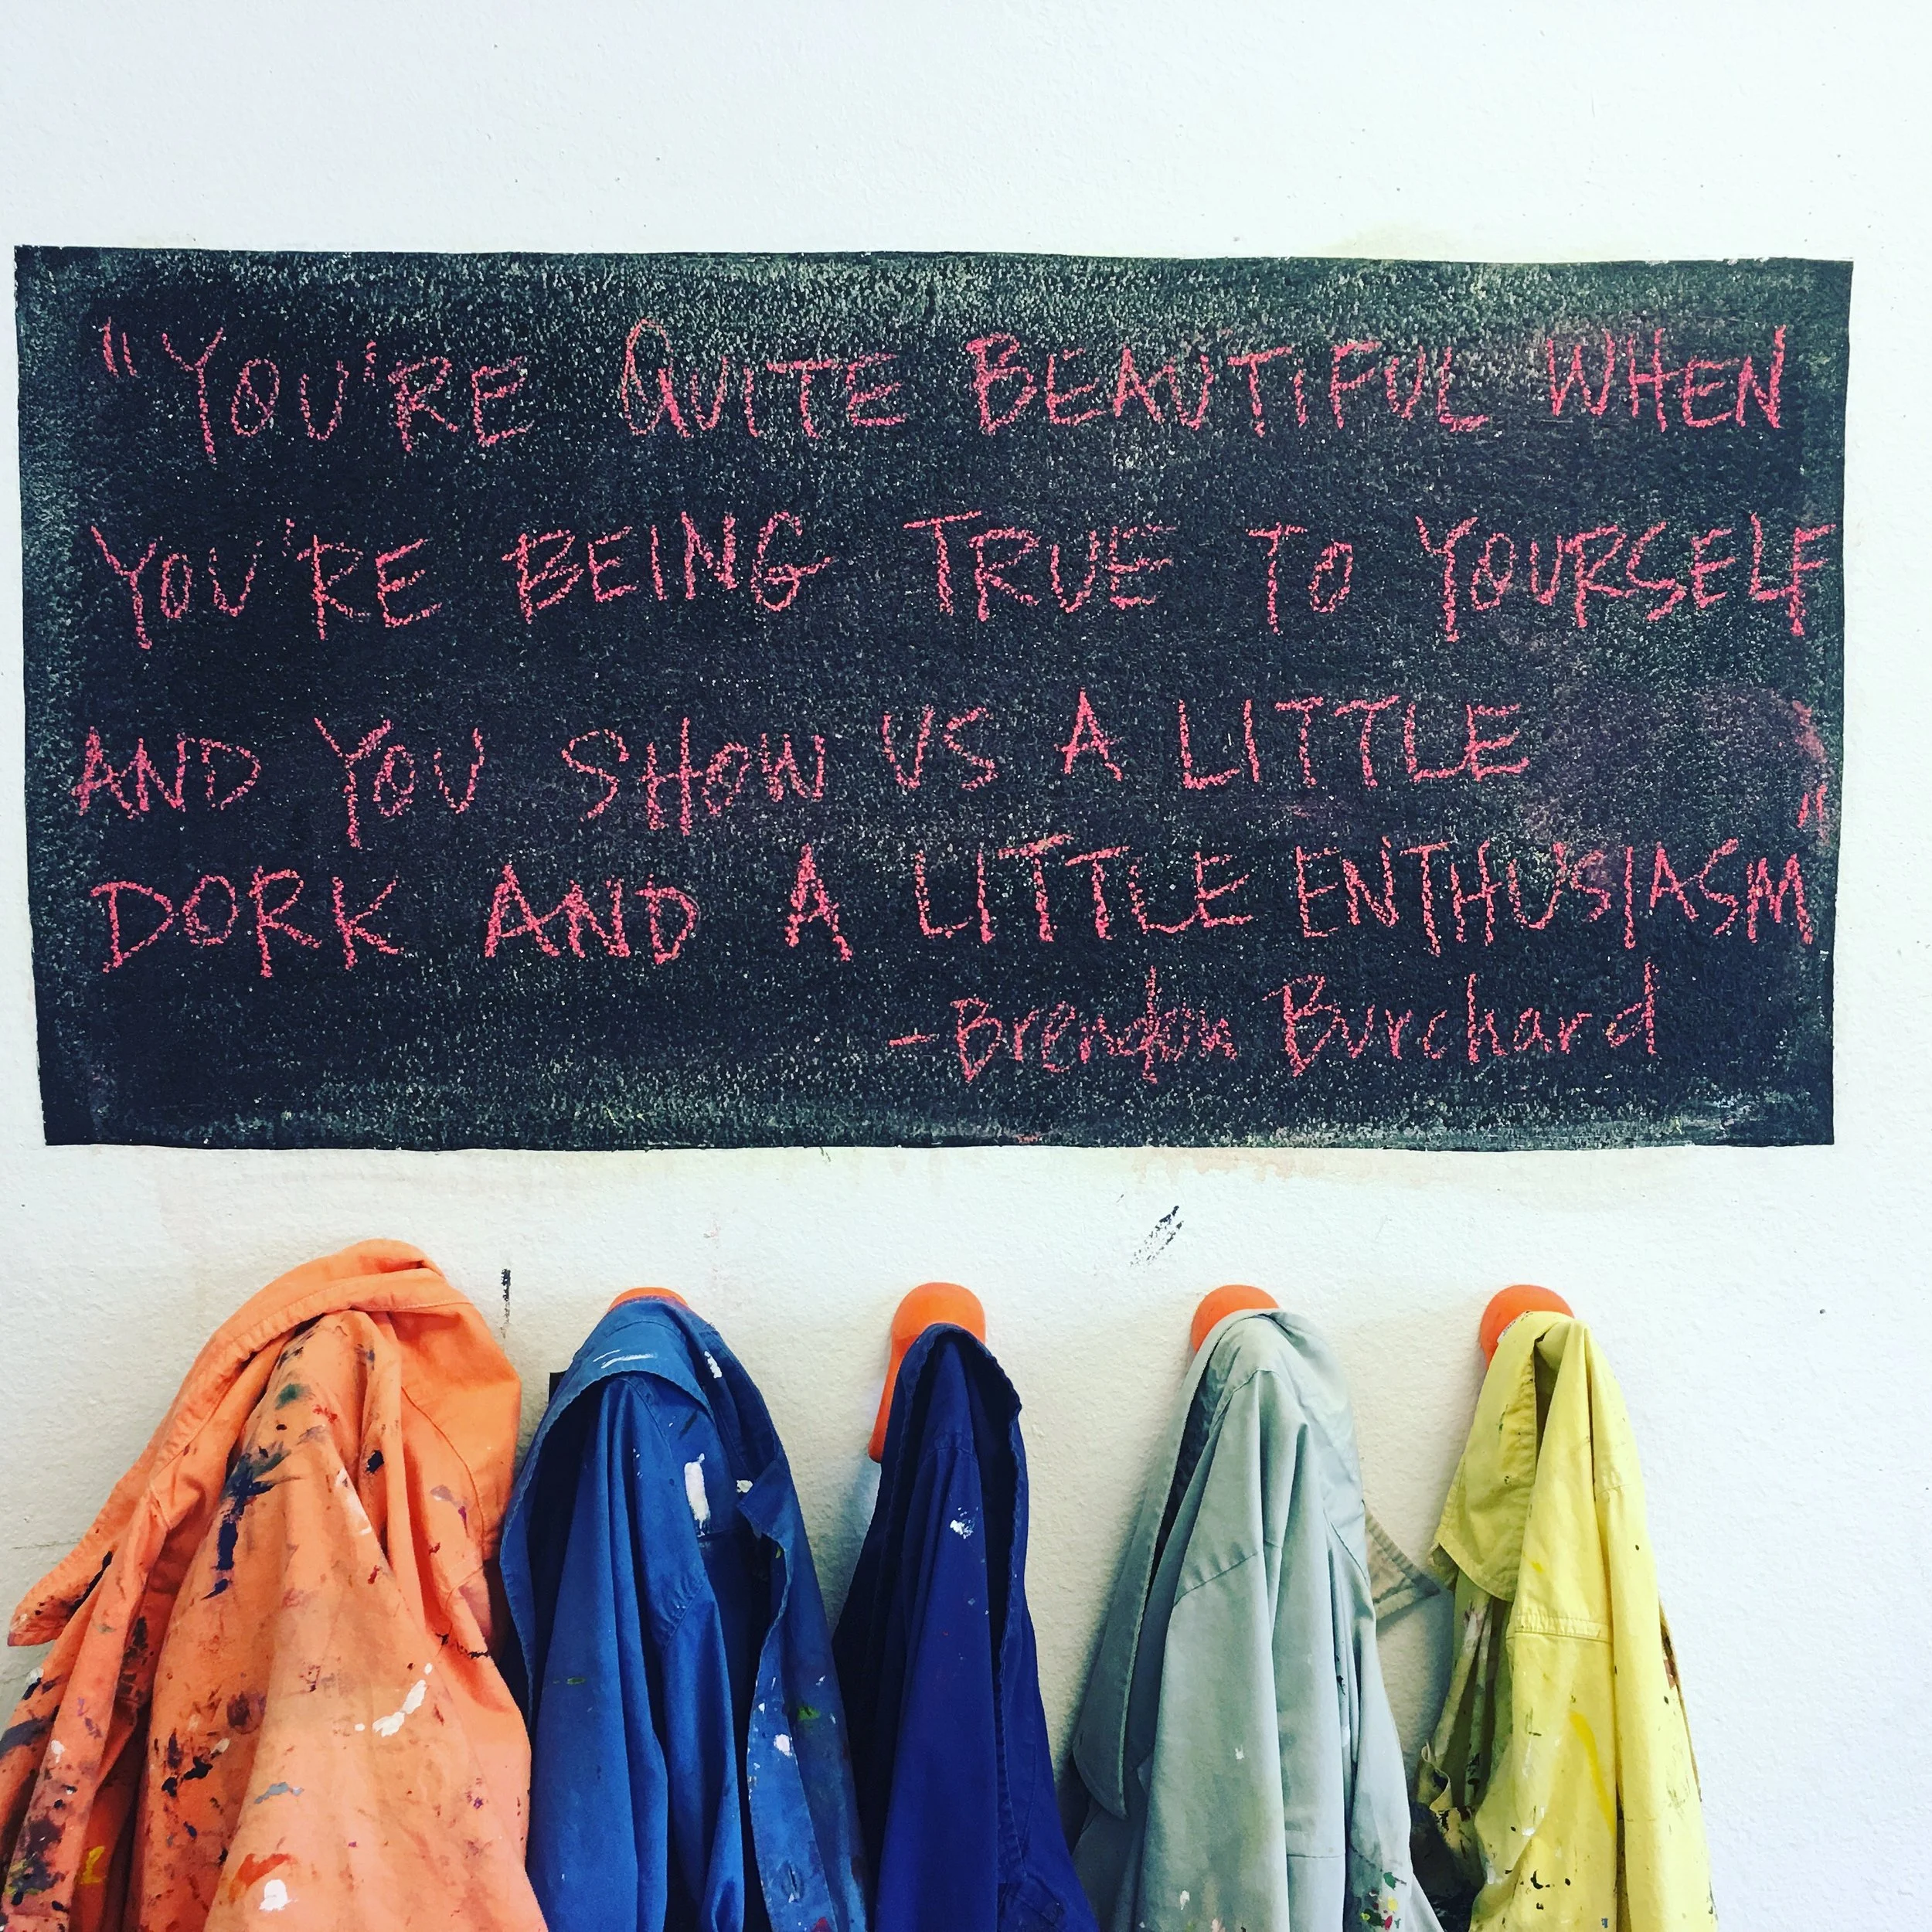 "YOU'RE QUITE BEAUTIFUL WHEN
YOU'RE BEING TRUE TO YOURSELF
AND YOU SHOW US A LITTLE
DORK AND A LITTLE ENTHUSIASM"
-Brendon Burchard